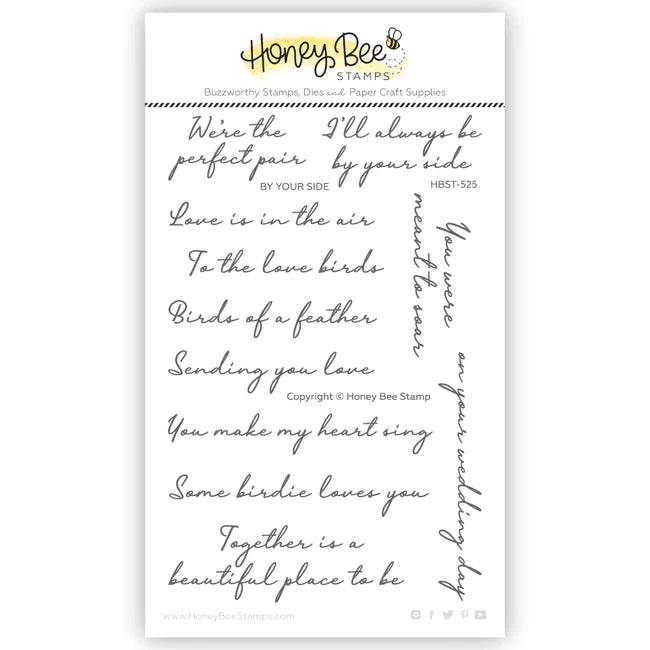 Honey Bee
STAMPS
Buzzworthy Stamps, Dies and Paper Craft Supplies
We're the
perfect pair
I'll always be
by your side
BY YOUR SIDE
HBST-525
Love is in the air
To the love birds
Birds of a feather
Sending you love
You were
meant to soar
Copyright © Honey Bee Stamp
You make my heart sing
on your wedding day
Some birdie loves you
Together is a
beautiful place to be
www.HoneyBeeStamps.com